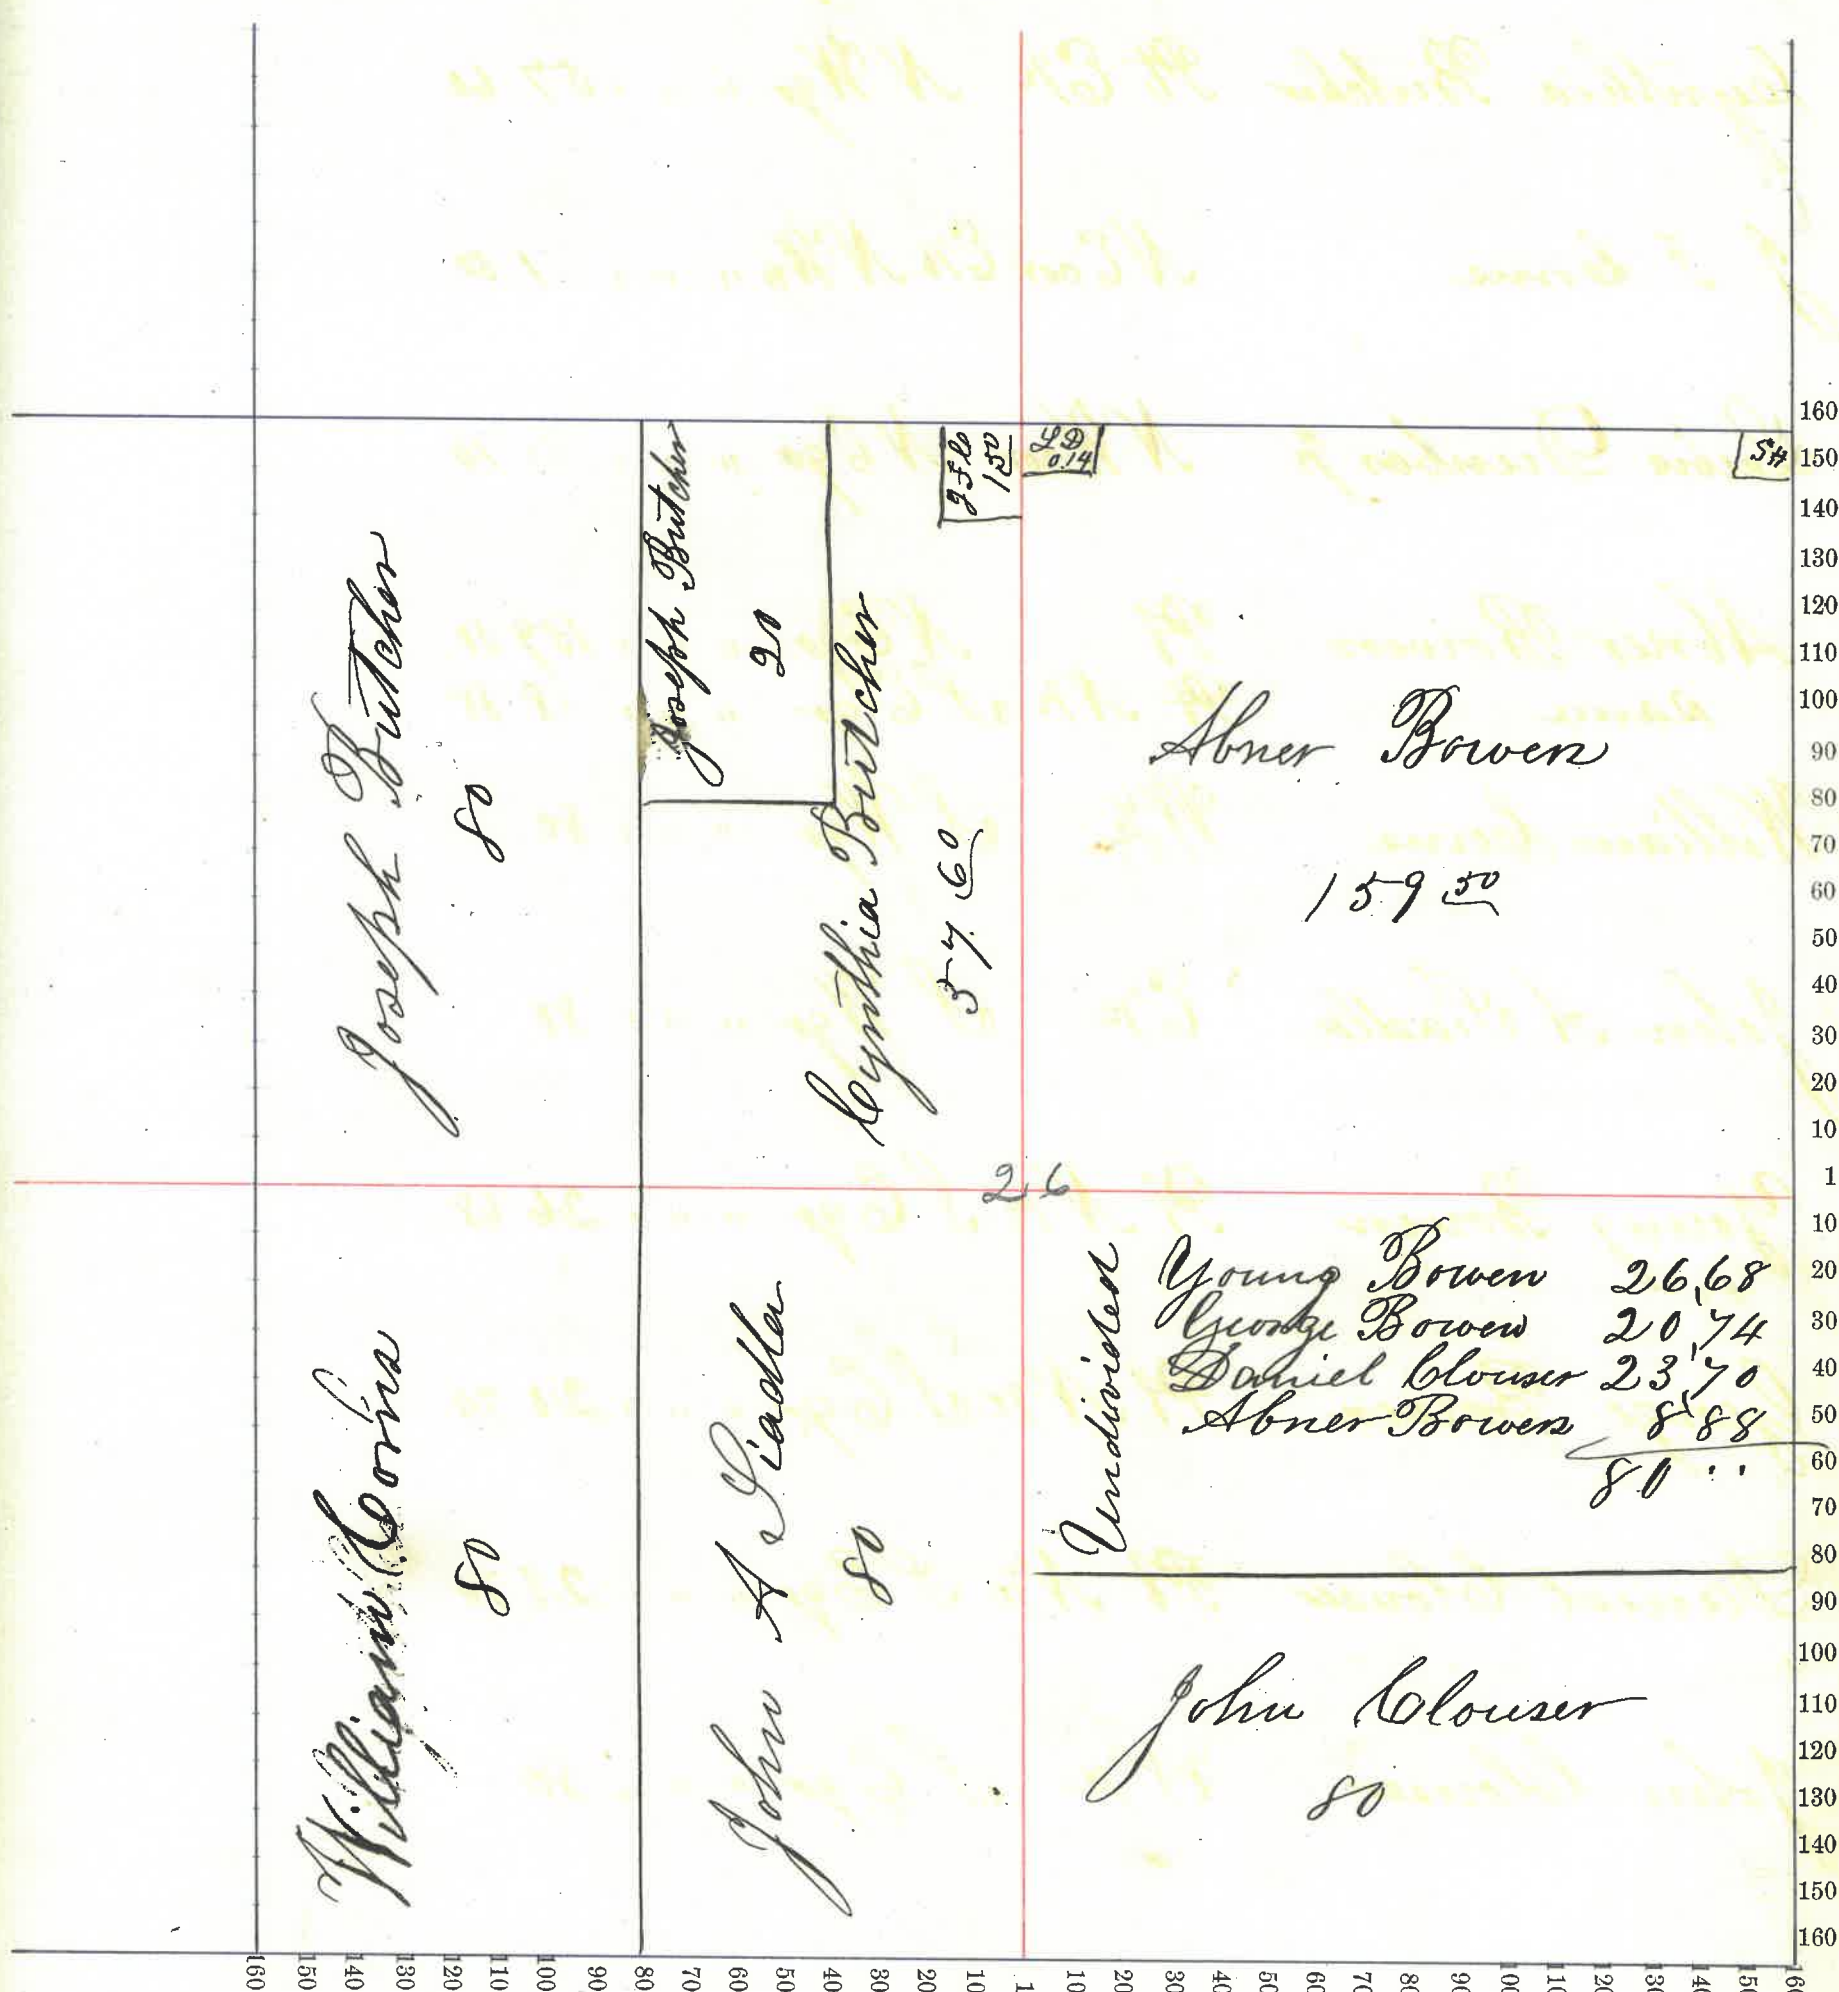 Joseph Butcher
80
Joseph Butcher
20
Cynthia Butcher
57.60
J F Co
1 50
L D
0.14
S H
Abner Bowen
159 50
26
William Corns
80
John A Siadler
80
Undivided
Young Bowen 26,68
George Bowen 20,74
Daniel Clouser 23,70
Abner Bowen 8,88
80 ..
John Clouser
80
160
150
140
130
120
110
100
90
80
70
60
50
40
30
20
10
1
10
20
30
40
50
60
70
80
90
100
110
120
130
140
150
160
160 150 140 130 120 110 100 90 80 70 60 50 40 30 20 10 1 10 20 30 40 50 60 70 80 90 100 110 120 130 140 150 160